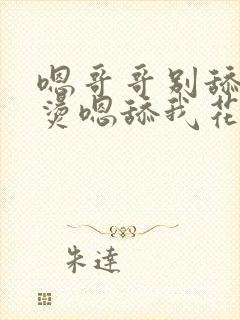 嗯哥哥别舔
烫嗯舔我花
朱達